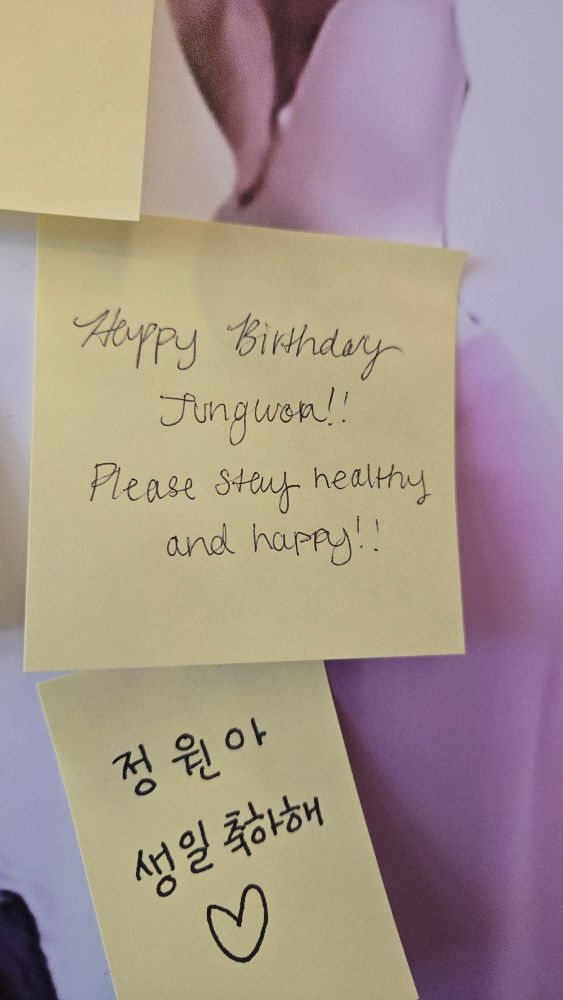 Happy Birthday
Jungwon!!
Please stay healthy
and happy!!
정원아
생일 축하해